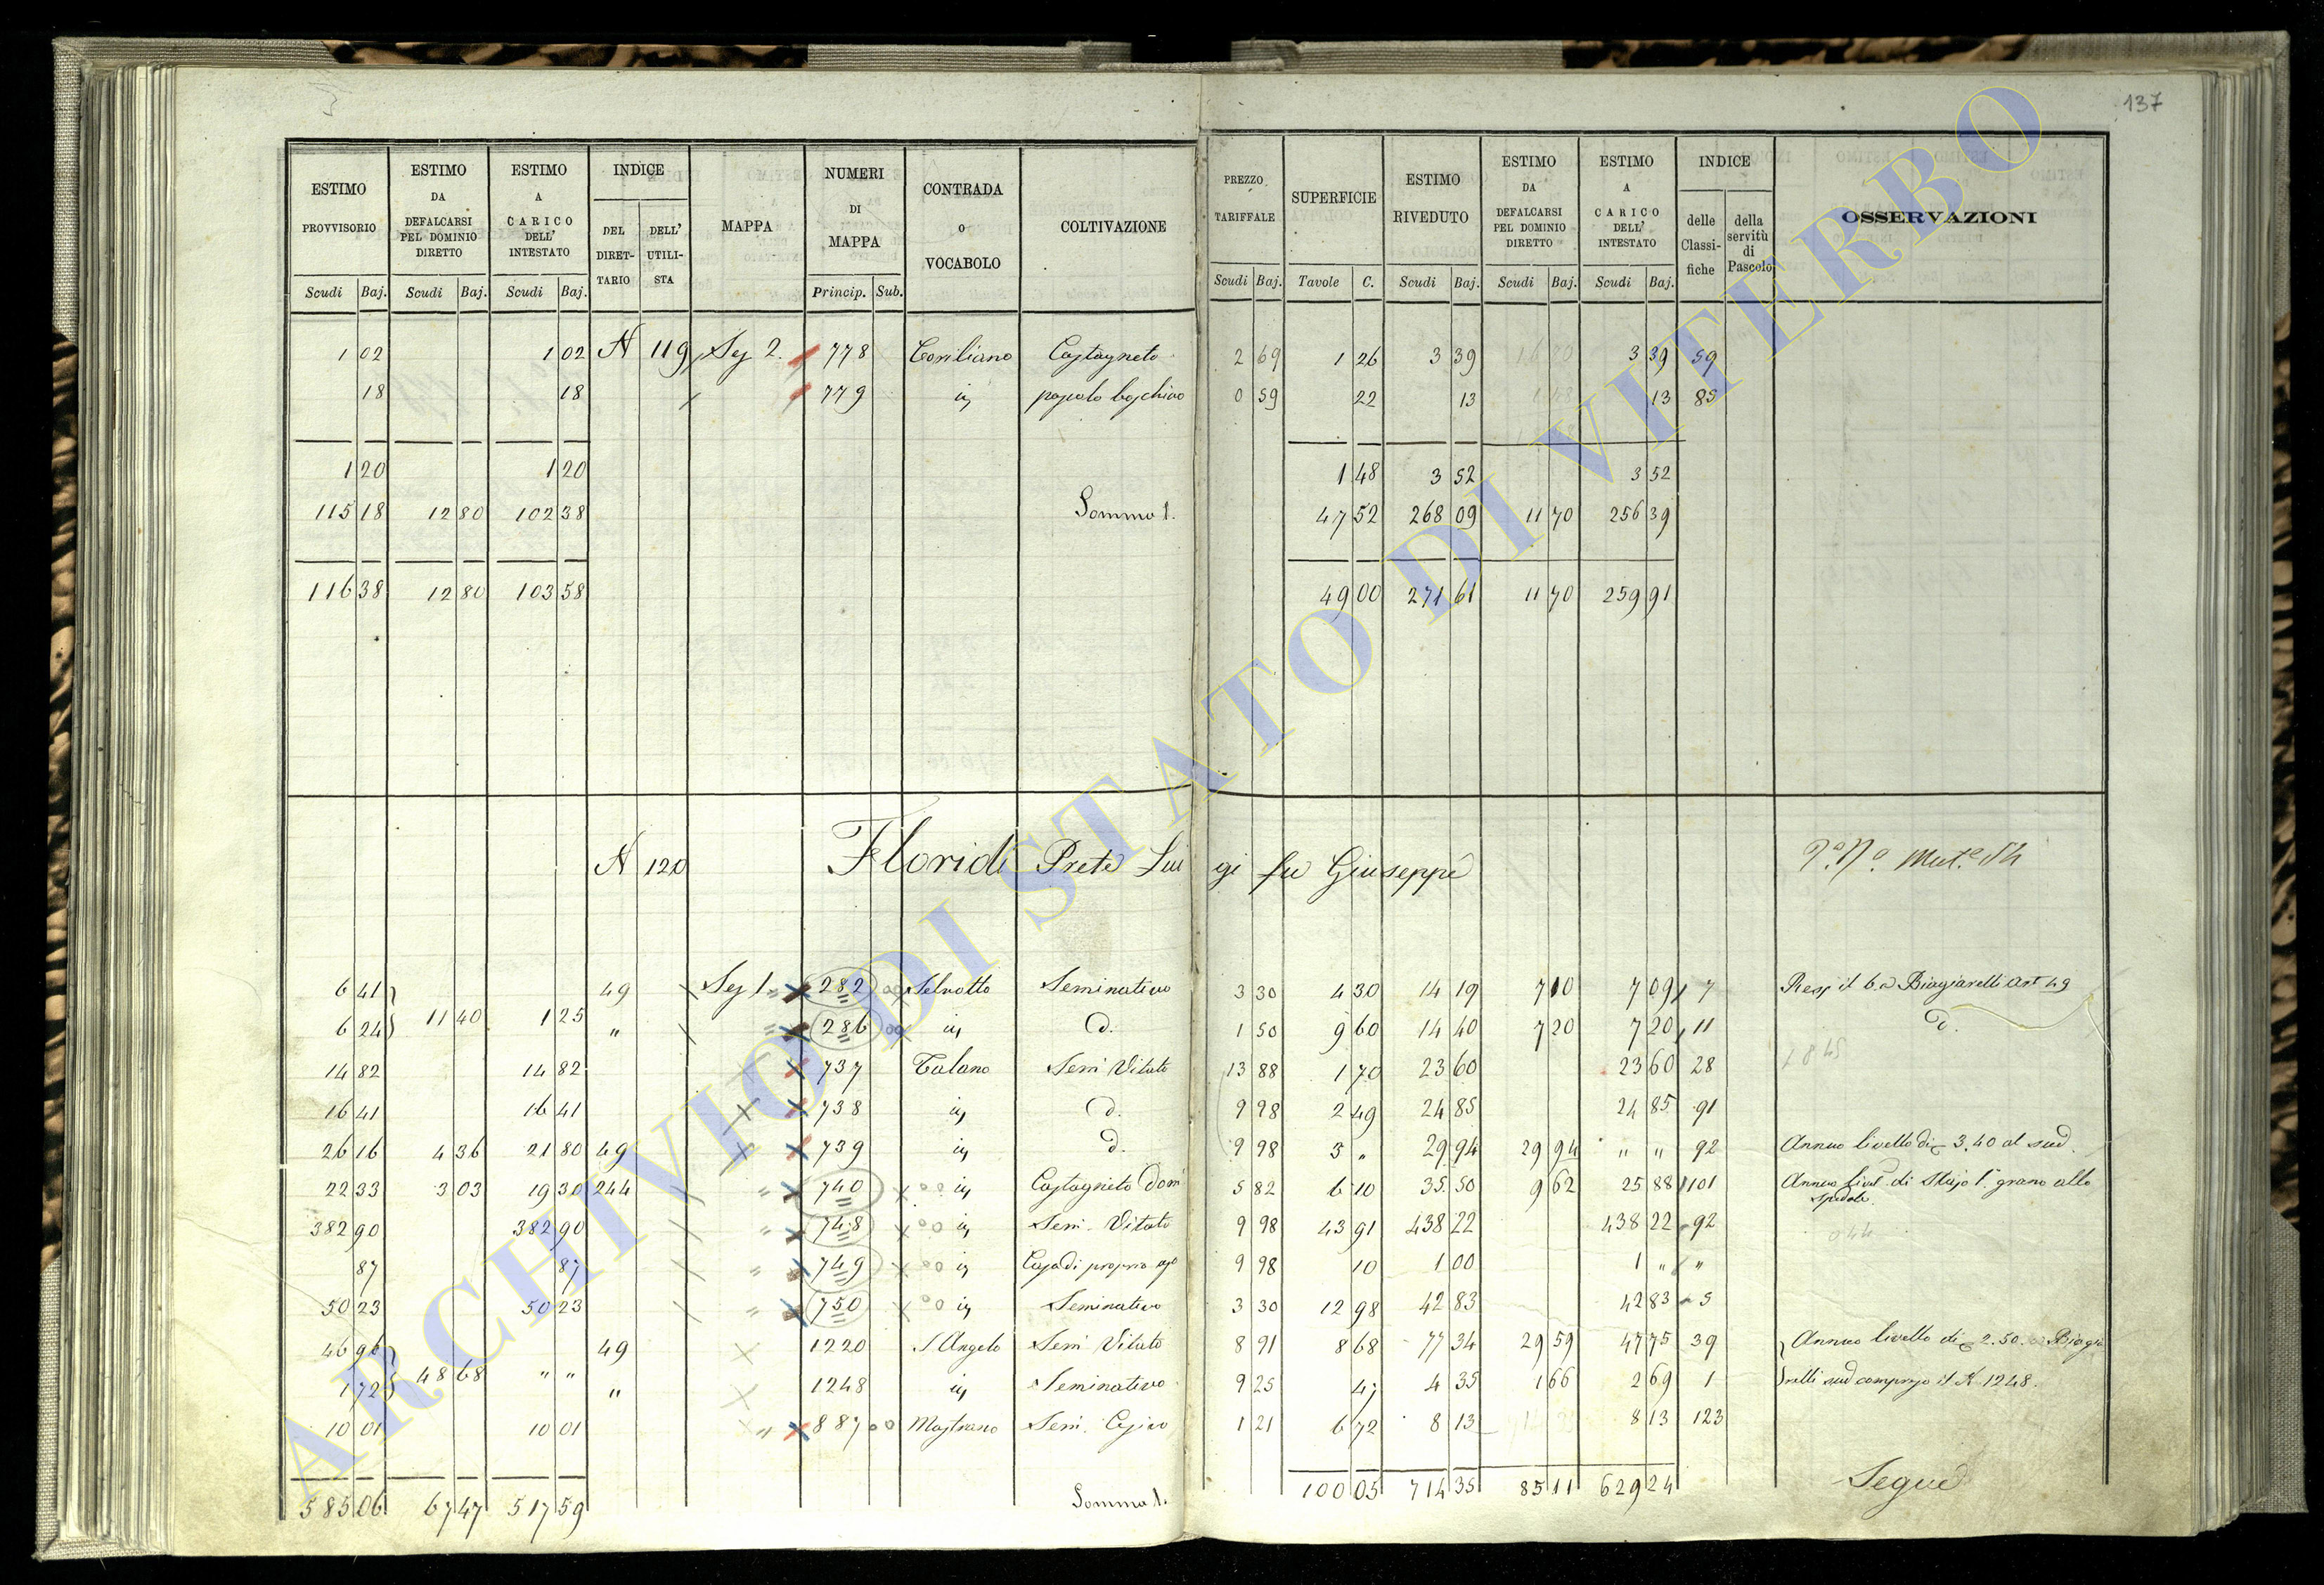 137
ESTIMO PROVVISORIO
ESTIMO DA DEFALCARSI PEL DOMINIO DIRETTO
ESTIMO A CARICO DELL' INTESTATO
INDICE
DEL DIRET-TARIO
DELL' UTILI-STA
MAPPA
NUMERI DI MAPPA
CONTRADA o VOCABOLO
COLTIVAZIONE
PREZZO TARIFFALE
SUPERFICIE
ESTIMO RIVEDUTO
ESTIMO DA DEFALCARSI PEL DOMINIO DIRETTO
ESTIMO A CARICO DELL' INTESTATO
INDICE
delle Classi-fiche
della servitù di Pascolo
OSSERVAZIONI
Scudi Baj. Scudi Baj. Scudi Baj. Princip. Sub. Scudi Baj. Tavole C. Scudi Baj. Scudi Baj. Scudi Baj.
1 02 1 02 N 119 Sez 2. 778 Castagneto 2 69 1 26 3 39 3 39 59
18 18 779 pascolo boschivo 0 59 22 13 13 85
1 20 1 20 1 48 3 52 3 52
115 18 12 80 102 38 Somma 1. 47 52 268 09 11 70 256 39
116 38 12 80 103 58 49 00 271 61 11 70 259 91
N 120 Floridi Prete Luigi fu Giuseppe
6 41 49 Sez 1 282 Selvotto Seminativo 3 30 4 30 14 19 7 10 7 09 7 art 49
6 24 11 40 1 25 " 286 d. 1 50 9 60 14 40 7 20 7 20 11 d.
14 82 14 82 737 Talano Sem Vitato 13 88 1 70 23 60 23 60 28
16 41 16 41 738 d. 9 98 2 49 24 85 24 85 91
26 16 4 36 21 80 49 739 d. 9 98 3 " 29 94 29 94 " " 92 Annuo livello di 3.40 al sud.
22 33 3 03 19 30 244 740 Castagneto Dom 5 82 6 10 35 50 9 62 25 88 101 Annuo di Stajo 1 grano allo
spedale
382 90 382 90 748 Sem. Vitato 9 98 43 91 438 22 438 22 92
87 87 749 Casa di proprio uso 9 98 10 1 00 1 " "
50 23 50 23 750 Seminativo 3 30 12 98 42 83 42 83 5
46 96 49 1220 S Angelo Sem Vitato 8 91 8 68 77 34 29 59 47 75 39 Annuo livello di 2.50. Biagia
1 72 48 68 " " " 1248 Seminativo 9 25 47 4 35 1 66 2 69 1 relli sud compreso il N 1248.
10 01 10 01 887 Mastrano Sem. 1 21 6 72 8 13 8 13 123
585 06 67 47 517 59 Somma 1. 100 05 714 35 85 11 629 24 Segue
ARCHIVIO DI STATO DI VITERBO